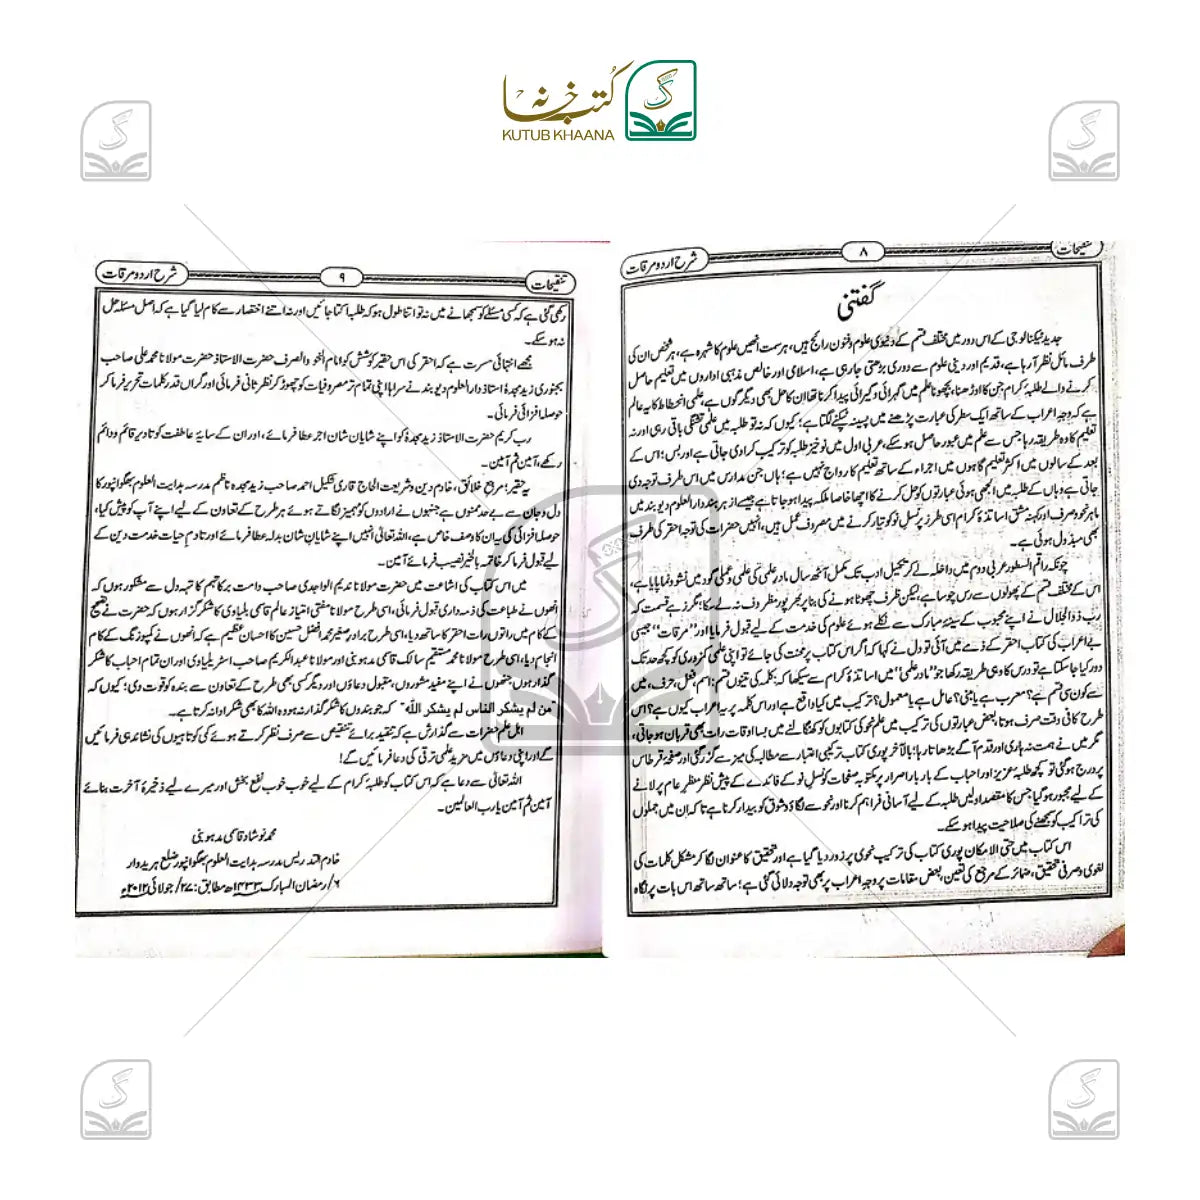 کتب خانہ
KUTUB KHAANA
تنقیحات ۸ شرح اردو مرقات
گفتنی
جدید ٹیکنالوجی کے اس دور میں مختلف قسم کے دنیوی علوم وفنون رائج ہیں، ہر سمت انھیں علوم کا شہرہ ہے، ہر شخص ان کی
طرف مائل نظر آرہا ہے، قدیم اور دینی علوم سے دوری بڑھتی جاری ہے، اسلامی اور خالص مذہبی اداروں میں تعلیم حاصل
کرنے والے طلبۂ کرام جن کا اوڑھنا، بچھونا علم میں گہرائی وگیرائی پیدا کرنا تھا ان کا حال بھی دیگر گوں ہے، علمی انحطاط کا یہ عالم
ہے کہ وجہ اعراب کے ساتھ ایک سطر کی عبارت پڑھنے میں پسینہ ٹپکنے لگتا ہے؛ کیوں کہ نہ تو طلبہ میں علمی تشنگی باقی رہی اور نہ
تعلیم کا وہ طریقہ رہا جس سے علم میں عبور حاصل ہوسکے، عربی اول میں نوخیز طلبہ کو ترکیب کرادی جاتی ہے اور بس؛ اس کے
بعد کے سالوں میں اکثر تعلیم گاہوں میں اجراء کے ساتھ تعلیم کا رواج نہیں ہے؛ ہاں جن مدارس میں اس طرف توجہ دی
جاتی ہے وہاں کے طلبہ میں الجھی ہوئی عبارتوں کو حل کرنے کا اچھا خاصا ملکہ پیدا ہوجاتا ہے جیسے ازہر ہند دارالعلوم دیوبند میں
ماہر نحو وصرف اور کہنہ مشق اساتذۂ کرام اسی طرز پر نسل نو کو تیار کرنے میں مصروف عمل ہیں، انہیں حضرات کی توجہ احقر کی طرف
بھی مبذول ہوئی ہے۔
چونکہ راقم السطور عربی دوم میں داخلہ لے کر تکمیل ادب تک مکمل آٹھ سال مادر علمی کی علمی و عملی گود میں نشو ونما پایا ہے،
اس کے مختلف قسم کے پھولوں سے رس چوسا ہے، لیکن ظرف چھوٹا ہونے کی بنا پر بھر پور مظروف نہ لے سکا؛ مگر زہے قسمت کہ
رب ذوالجلال نے اپنے محبوب کے سینۂ مبارک سے نکلے ہوئے علوم کی خدمت کے لیے قبول فرمایا اور "مرقات" جیسی
بے اعراب کی کتاب احقر کے ذمے میں آئی تو دل نے کہا کہ اگر اس کتاب پر محنت کی جائے تو اپنی علمی کمزوری کو کچھ حد تک
دور کیا جاسکتا ہے تو درس کا وہی طریقہ رکھا جو "مادر علمی" میں اساتذۂ کرام سے سیکھا کہ: کلمہ کی تینوں قسم: اسم، فعل، حرف، میں
سے کون سی قسم ہے؟ معرب ہے یا مبنی؟ عامل ہے یا معمول؟ ترکیب میں کیا واقع ہے اور اس کلمہ پر یہ اعراب کیوں ہے؟ اس
طرح کافی وقت صرف ہوتا، بعض عبارتوں کی ترکیب میں علم نحو کی کتابوں کو کھنگالنے میں بسا اوقات رات بھی قربان ہو جاتی،
مگر میں نے ہمت نہ ہاری اور قدم آگے بڑھاتا رہا؛ بالآخر پوری کتاب ترکیبی اعتبار سے مطالعہ کی میز سے گزر گئی اور صفحۂ قرطاس
پر درج ہوگئی تو کچھ طلبہ عزیز اور احباب کے بار بار اصرار پر مکتوبہ صفحات کو نسل نو کے فائدے کے پیش نظر منظر عام پر لانے
کے لیے مجبور ہوگیا جس کا مقصد اولیں طلبہ کے لیے آسانی فراہم کرنا اور نحو سے لگاؤ و شوق کو بیدار کرنا ہے تاکہ ان میں جملوں
کی تراکیب کو سمجھنے کی صلاحیت پیدا ہوسکے۔
اس کتاب میں حتی الامکان پوری کتاب کی ترکیب نحوی پر زور دیا گیا ہے اور تحقیق کا عنوان لگا کر مشکل کلمات کی
لغوی وصرفی تحقیق، ضمائر کے مرجع کی تعین، بعض مقامات پر وجہ اعراب پر بھی توجہ دلائی گئی ہے؛ ساتھ ساتھ اس بات پر نگاہ
تنقیحات ۹ شرح اردو مرقات
رکھی گئی ہے کہ کسی مسئلے کو سمجھانے میں نہ تو اتنا طول ہو کہ طلبا اکتا جائیں اور نہ اتنے اختصار سے کام لیا گیا ہے کہ اصل مسئلہ حل
نہ ہوسکے۔
مجھے انتہائی مسرت ہے کہ احقر کی اس حقیر کوشش کو امام النحو والصرف حضرت الاستاذ حضرت مولانا محمد علی صاحب
بجنوری زید مجدۂ استاذ دارالعلوم دیوبند نے سراہا اپنی تمام تر مصروفیات کو چھوڑ کر نظر ثانی فرمائی اور گراں قدر کلمات تحریر فرما کر
حوصلہ افزائی فرمائی۔
رب کریم حضرت الاستاذ زید مجدۂ کو اپنے شایان شان اجر عطا فرمائے، اور ان کے سایۂ عاطفت کو تادیر قائم ودائم
رکھے، آمین ثم آمین۔
یہ حقیر؛ مرجع خلائق، خادم دین وشریعت الحاج قاری شکیل احمد صاحب زید مجدہ ناظم مدرسہ ہدایت العلوم بھگوانپور کا
دل وجان سے بے حد ممنوں ہے جنہوں نے ارادوں کو مہمیز لگاتے ہوئے ہر طرح کے تعاون کے لیے اپنے آپ کو پیش کیا،
حوصلہ افزائی کی یہ ان کا وصف خاص ہے، اللہ تعالیٰ انہیں اپنے شایانِ شان بدلہ عطا فرمائے اور تادم حیات خدمت دین کے
لیے قبول فرما کر خاتمہ بالخیر نصیب فرمائے آمین۔
میں اس کتاب کی اشاعت میں حضرت مولانا ندیم الواجدی صاحب دامت برکاتہم کا تہہ دل سے مشکور ہوں کہ
انھوں نے طباعت کی ذمہ داری قبول فرمائی، اسی طرح مولانا مفتی امتیاز عالم قاسمی بلیاوی کا شکر گزار ہوں کہ حضرت نے تصحیح
کے کام میں راتوں رات احقر کا ساتھ دیا، اسی طرح برادر صغیر محمد افضل حسین کا احسان عظیم ہے کہ انھوں نے کمپوزنگ کے کام
انجام دیا، اسی طرح مولانا محمد مستقیم سالک قاسمی مدہوبنی اور مولانا عبدالکریم صاحب اسٹریلیاوی اور ان تمام احباب کا شکر
گذار ہوں جنھوں نے اپنے مفید مشوروں، مقبول دعاؤں اور دیگر کسی بھی طرح کے تعاون سے بندہ کو قوت دی؛ کیوں کہ
"من لم یشکر الناس لم یشکر اللہ" کہ جو بندوں کا شکر گذار نہ ہو وہ اللہ کا بھی شکر ادا نہ کرتا ہے۔
اہل علم حضرات سے گذارش ہے کہ تنقید برائے تنقیص سے صرف نظر کرتے ہوئے کمی کوتاہیوں کی نشاندہی فرمائیں
گے اور اپنی دعاؤں میں مزید علمی ترقی کی دعا فرمائیں گے!
اللہ تعالیٰ سے دعا ہے کہ اس کتاب کو طلبۂ کرام کے لیے خوب خوب نفع بخش اور میرے لیے ذخیرۂ آخرت بنائے
آمین ثم آمین یا رب العالمین۔
محمد نوشاد قاسمی مدہوبنی
خادم التدریس مدرسہ ہدایت العلوم بھگوانپور ضلع ہریدوار
۶/ رمضان المبارک ۱۴۳۳ھ مطابق: ۲۷/ جولائی ۲۰۱۲ء